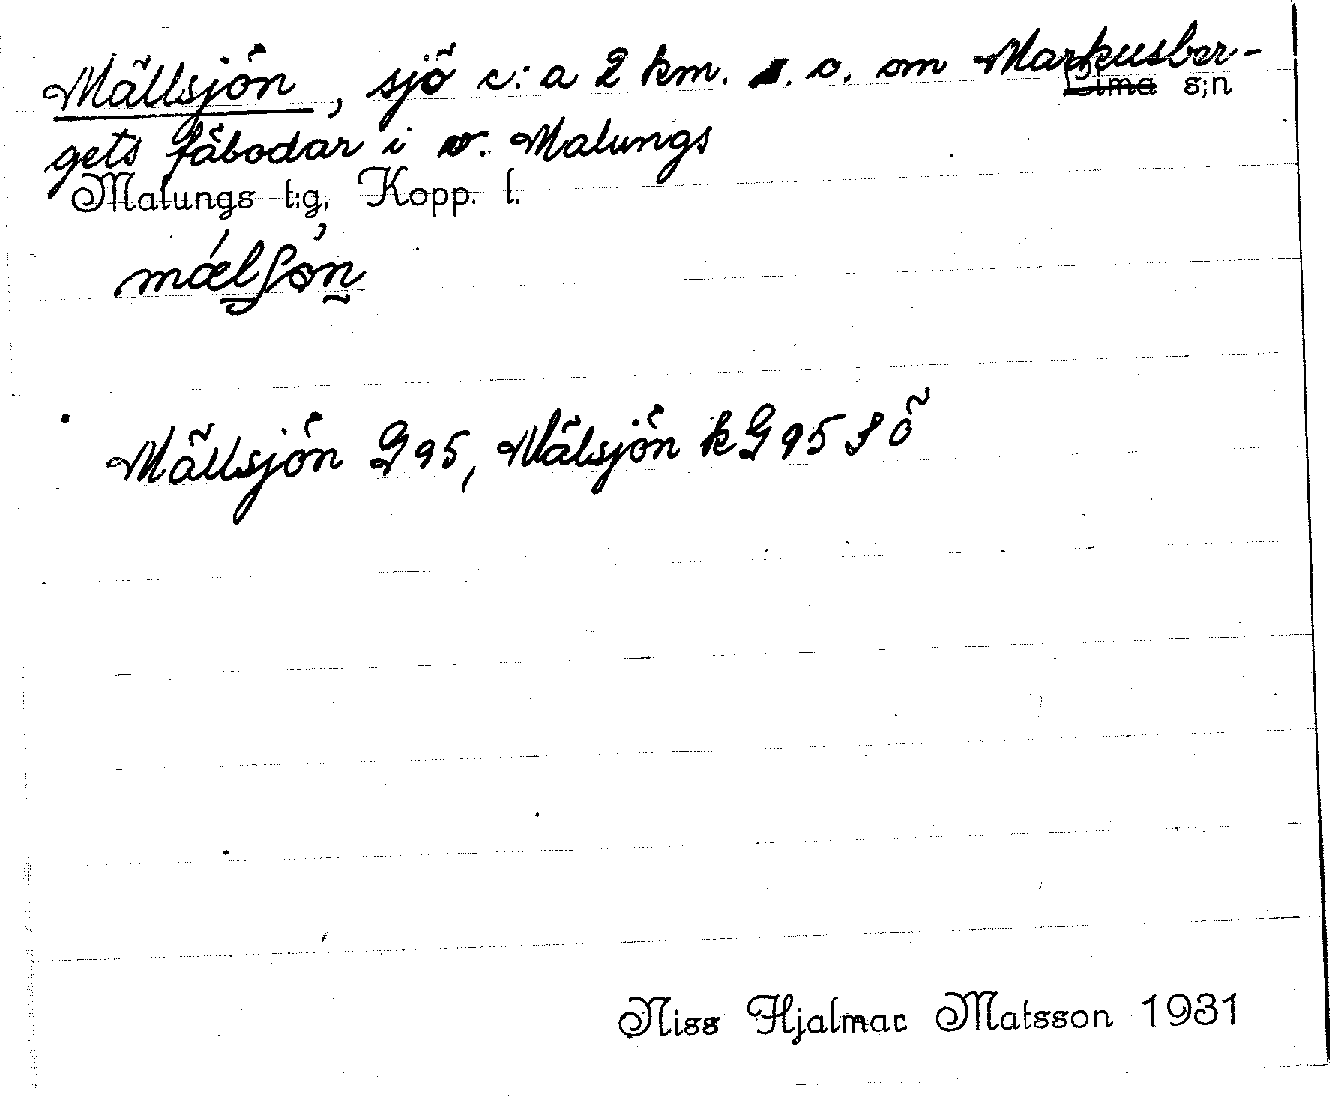 Mällsjön, sjö c:a 2 km. s. o. om Markusber-
gets fäbodar i v. Malungs Lima s;n
Malungs t:g, Kopp. l.
Mällsjön G 95, Mälsjön k G 95 S Ö
Niss Hjalmar Matsson 1931